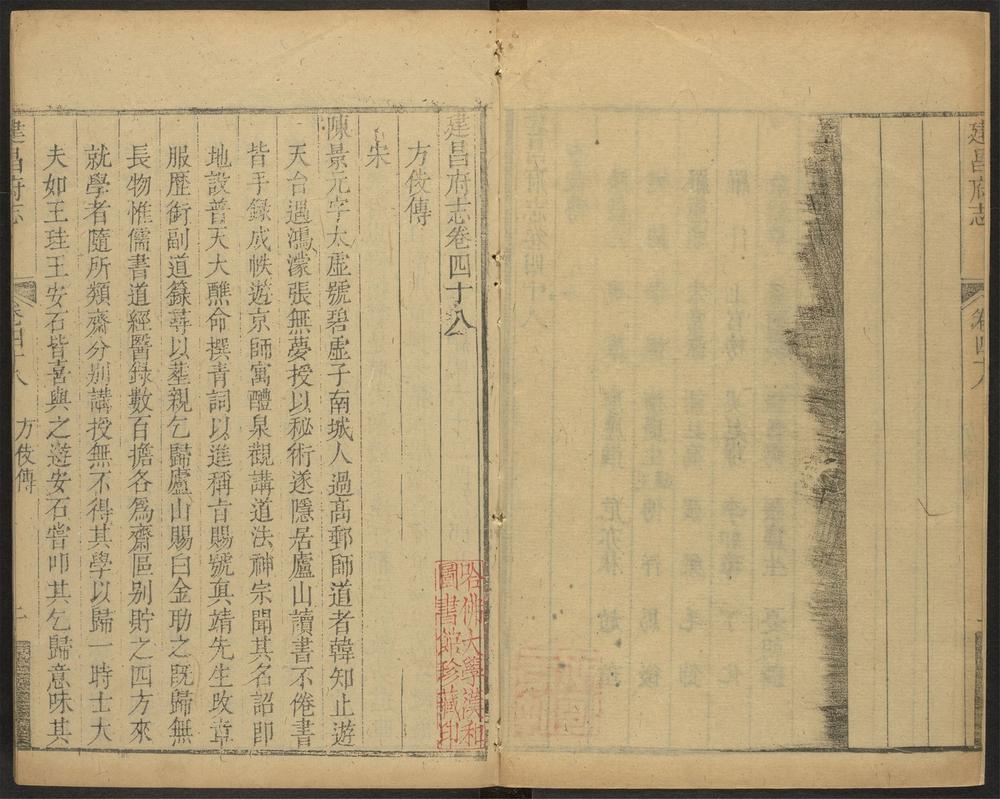 建昌府志
卷四十八
建昌府志卷四十八
方伎傳
宋
陳景元字太虛號碧虛子南城人過高郵師道者韓知止遊
天台遇鴻濛張無夢授以秘術遂隱居廬山讀書不倦書
皆手錄成帙遊京師寓醴泉觀講道法神宗聞其名詔即
地設普天大醮命撰青詞以進稱旨賜號眞靖先生改章
服歷銜副道籙尋以塟親乞歸廬山賜白金助之既歸無
長物惟儒書道經醫錄數百擔各爲齋區别貯之四方來
就學者隨所類齋分别講授無不得其學以歸一時士大
夫如王珪王安石皆喜與之遊安石嘗叩其乞歸意味其
建昌府志
卷四十八
方伎傳
一
哈佛大學漢和
圖書館珍藏印